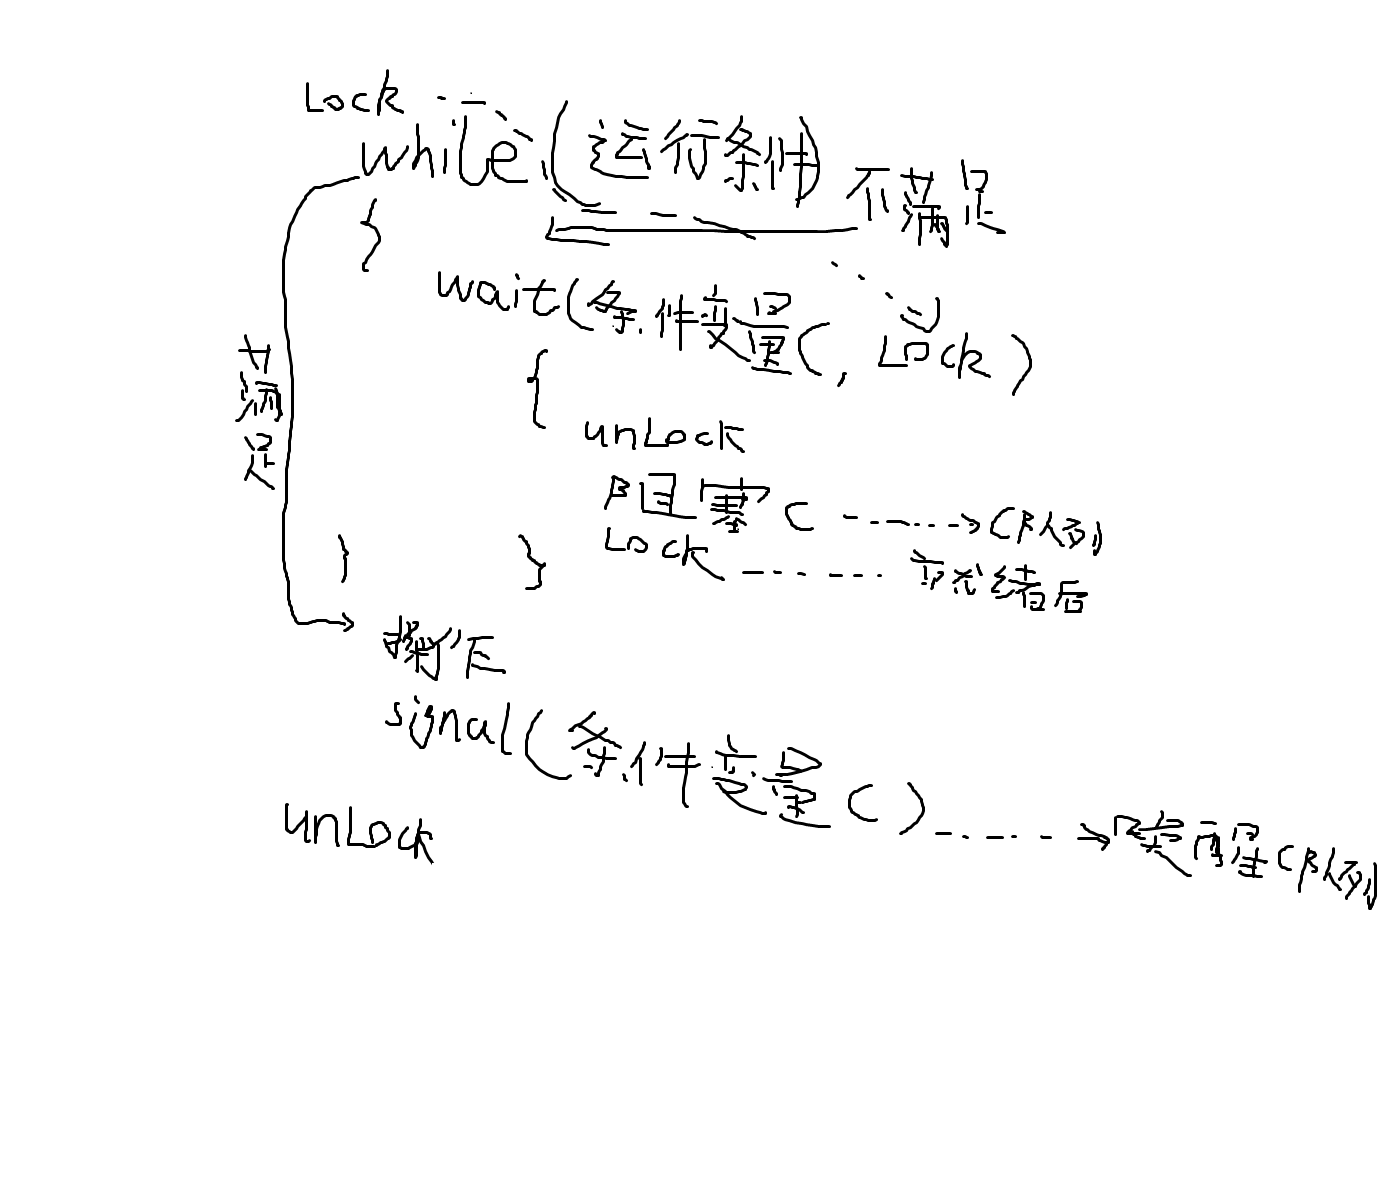 Lock
while (运行条件) 不满足
{
wait(条件变量C, Lock)
满足
{
unLock
阻塞C → C队列
Lock 就绪后
} }
操作
signal(条件变量C) → 唤醒C队列
unLock